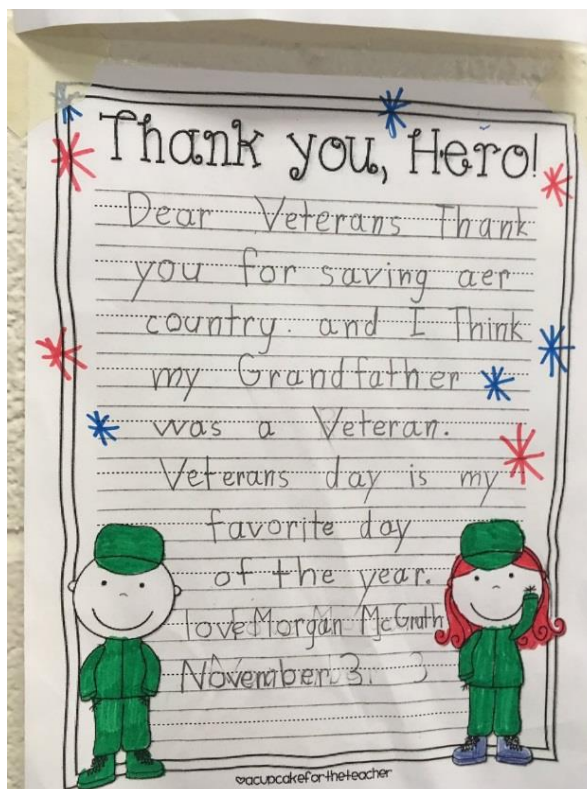 Thank you, Hero!
Dear Veterans Thank
you for saving aer
country. and I Think
my Grandfather
was a Veteran.
Veterans day is my
favorite day
of the year.
love Morgan McGrath
November 3.
♥acupcakefortheteacher